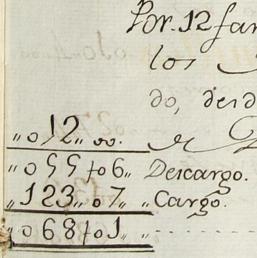 Por. 12 fan
los
do, desd
„012„00. de
„055to6„ Descargo.
„123„07„ „Cargo.
„068to1„ „